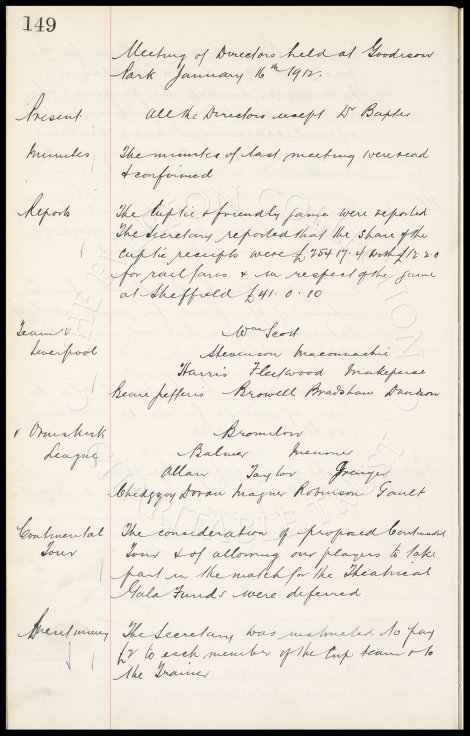 149
Meeting of Directors held at Goodison
Park January 16th 1912.
Present All the Directors except Dr Baxter
Minutes The minutes of last meeting were read
& confirmed
Reports The Cuptie & friendly game were reported
The Secretary reported that the share of the
Cuptie receipts were £254.17.4 with £12.2.0
for rail fares & in respect of the game
at Sheffield £41.0.10
Team v Wm Scott
Liverpool Stevenson Maconnachie
Harris Fleetwood Makepeace
Beare Jefferis Browell Bradshaw Davidson
v Ormskirk Bromilow
League Balmer Meunier
Allan Taylor Grenyer
Chedgzoy Doran Magner Robinson Gault
Continental The consideration of proposed Continental
Tour Tour & of allowing our players to take
part in the match for the Theatrical
Gala Funds were deferred
Spent money The Secretary was instructed to pay
£2 to each member of the Cup team & to
the Trainer